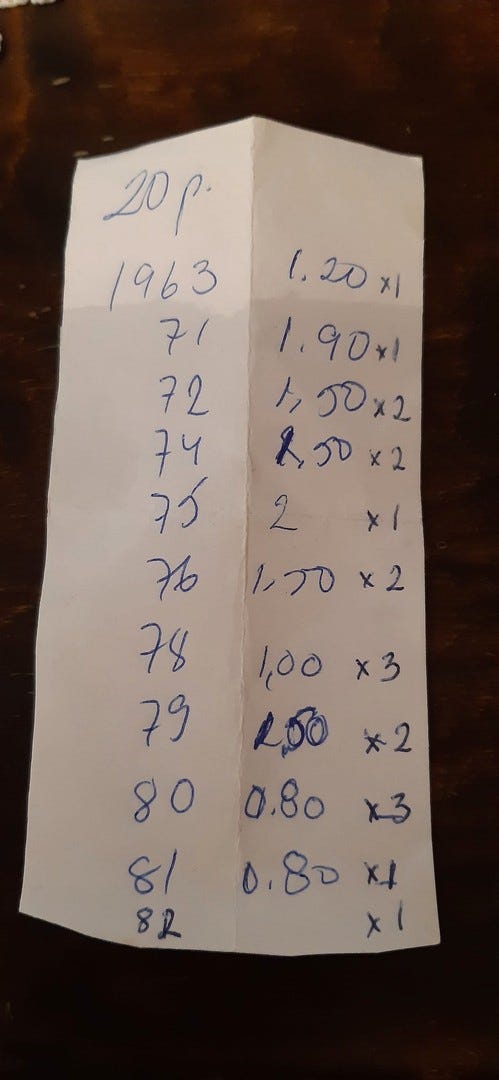 20 p.
1963 1.20 x1
71 1.90 x1
72 1,50 x2
74 1,50 x2
75 2 x1
76 1,50 x2
78 1,00 x3
79 1,50 x2
80 0.80 x3
81 0.80 x1
82 x1